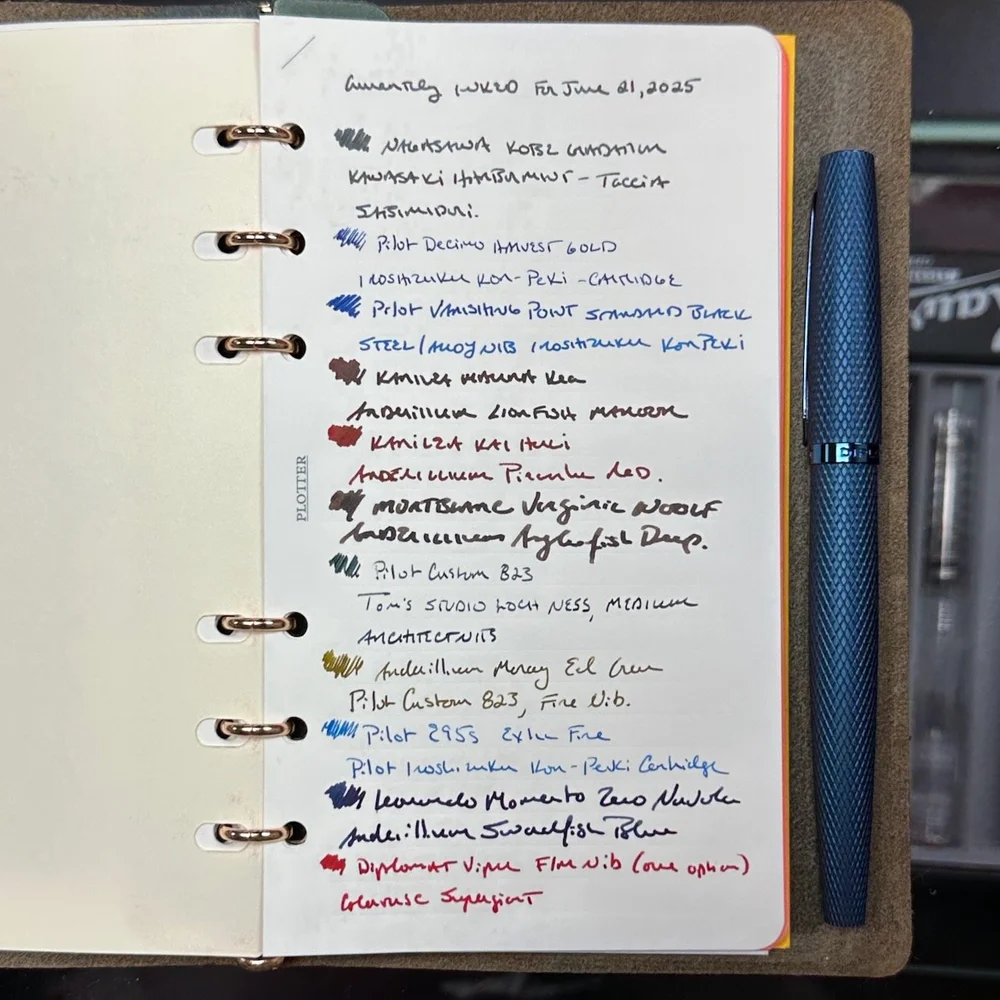 Currently inked For June 21, 2025
NAGASAWA KOBE
KAWASAKI - TACCIA
SABIMIDORI.
Pilot Decimo HARVEST GOLD
IROSHIZUKU KON-PEKI - CARTRIDGE
Pilot VANISHING POINT STANDARD BLACK
STEEL/ALLOY NIB IROSHIZUKU KON PEKI
KANILEA MAUNA Kea
ANDERILLIUM LIONFISH MAROON
KANILEA KAI
ANDERILLIUM Piranha RED.
MONTBLANC Virginia WOOLF
ANDERILLIUM Anglerfish Deep.
Pilot Custom 823
Tom's STUDIO LOCH NESS, MEDIUM
ARCHITECT NIB
Anderillium Moray Eel Green
Pilot Custom 823, Fine Nib.
Pilot Fine
Pilot Iroshizuku Kon-Peki Cartridge
Leonardo Momento Zero
Anderillium Swordfish Blue
Diplomat Viper Fine Nib (one option)
Supergiant
PLOTTER